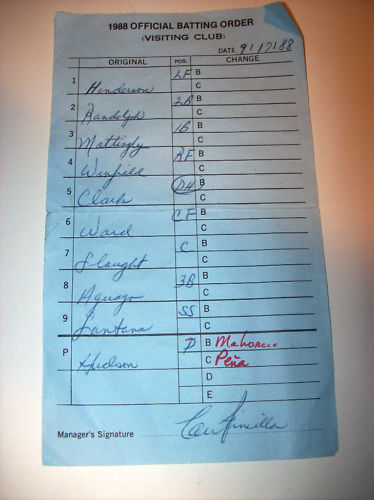 1988 OFFICIAL BATTING ORDER
(VISITING CLUB)
DATE 9/17/88
ORIGINAL POS. CHANGE
1 Henderson LF B
C
2 Randolph 2B B
C
3 Mattingly 1B B
C
4 Winfield RF B
C
5 Clark DH B
C
6 Ward CF B
C
7 Slaught C B
C
8 Aguayo 3B B
C
9 Santana SS B
C
P Hudson P B Mahorcic
C Peña
D
E
Manager's Signature Lou Piniella